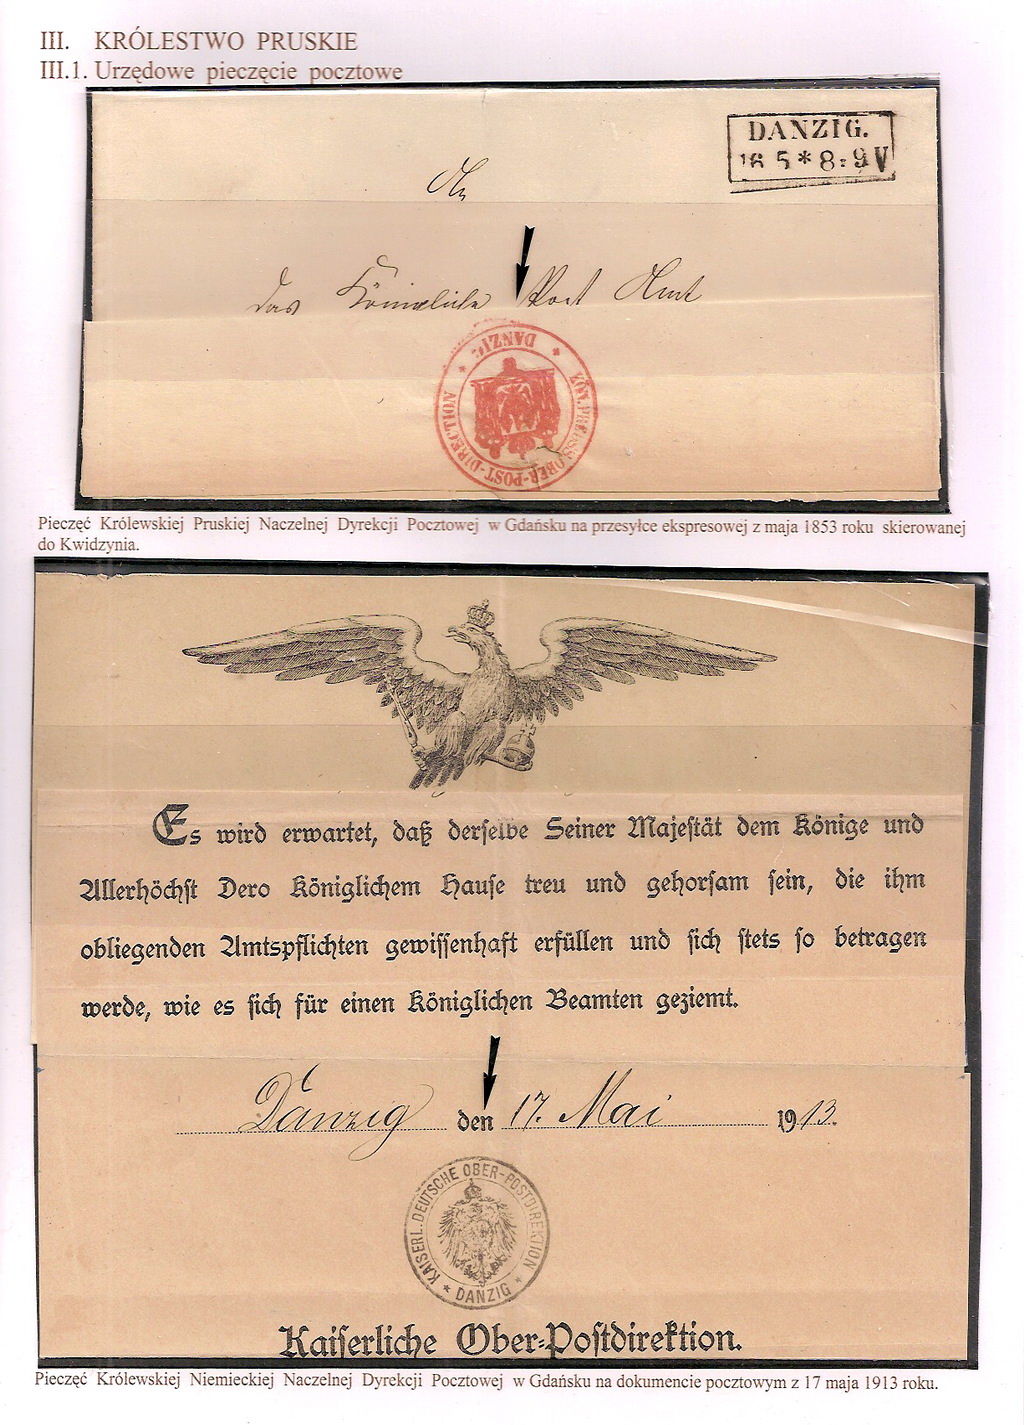 III. KRÓLESTWO PRUSKIE
III.1. Urzędowe pieczęcie pocztowe
DANZIG.
16 5 * 8-9 V
An
das Königliche Post Amt
* DANZIG *
KÖN. PREUSS. OBER-POST-DIRECTION
Pieczęć Królewskiej Pruskiej Naczelnej Dyrekcji Pocztowej w Gdańsku na przesyłce ekspresowej z maja 1853 roku skierowanej
do Kwidzynia.
Es wird erwartet, daß derselbe Seiner Majestät dem Könige und
Allerhöchst Dero Königlichem Hause treu und gehorsam sein, die ihm
obliegenden Amtspflichten gewissenhaft erfüllen und sich stets so betragen
werde, wie es sich für einen Königlichen Beamten geziemt.
Danzig den 17. Mai 1913.
KAISERL. DEUTSCHE OBER-POSTDIREKTION
* DANZIG *
Kaiserliche Ober-Postdirektion.
Pieczęć Królewskiej Niemieckiej Naczelnej Dyrekcji Pocztowej w Gdańsku na dokumencie pocztowym z 17 maja 1913 roku.